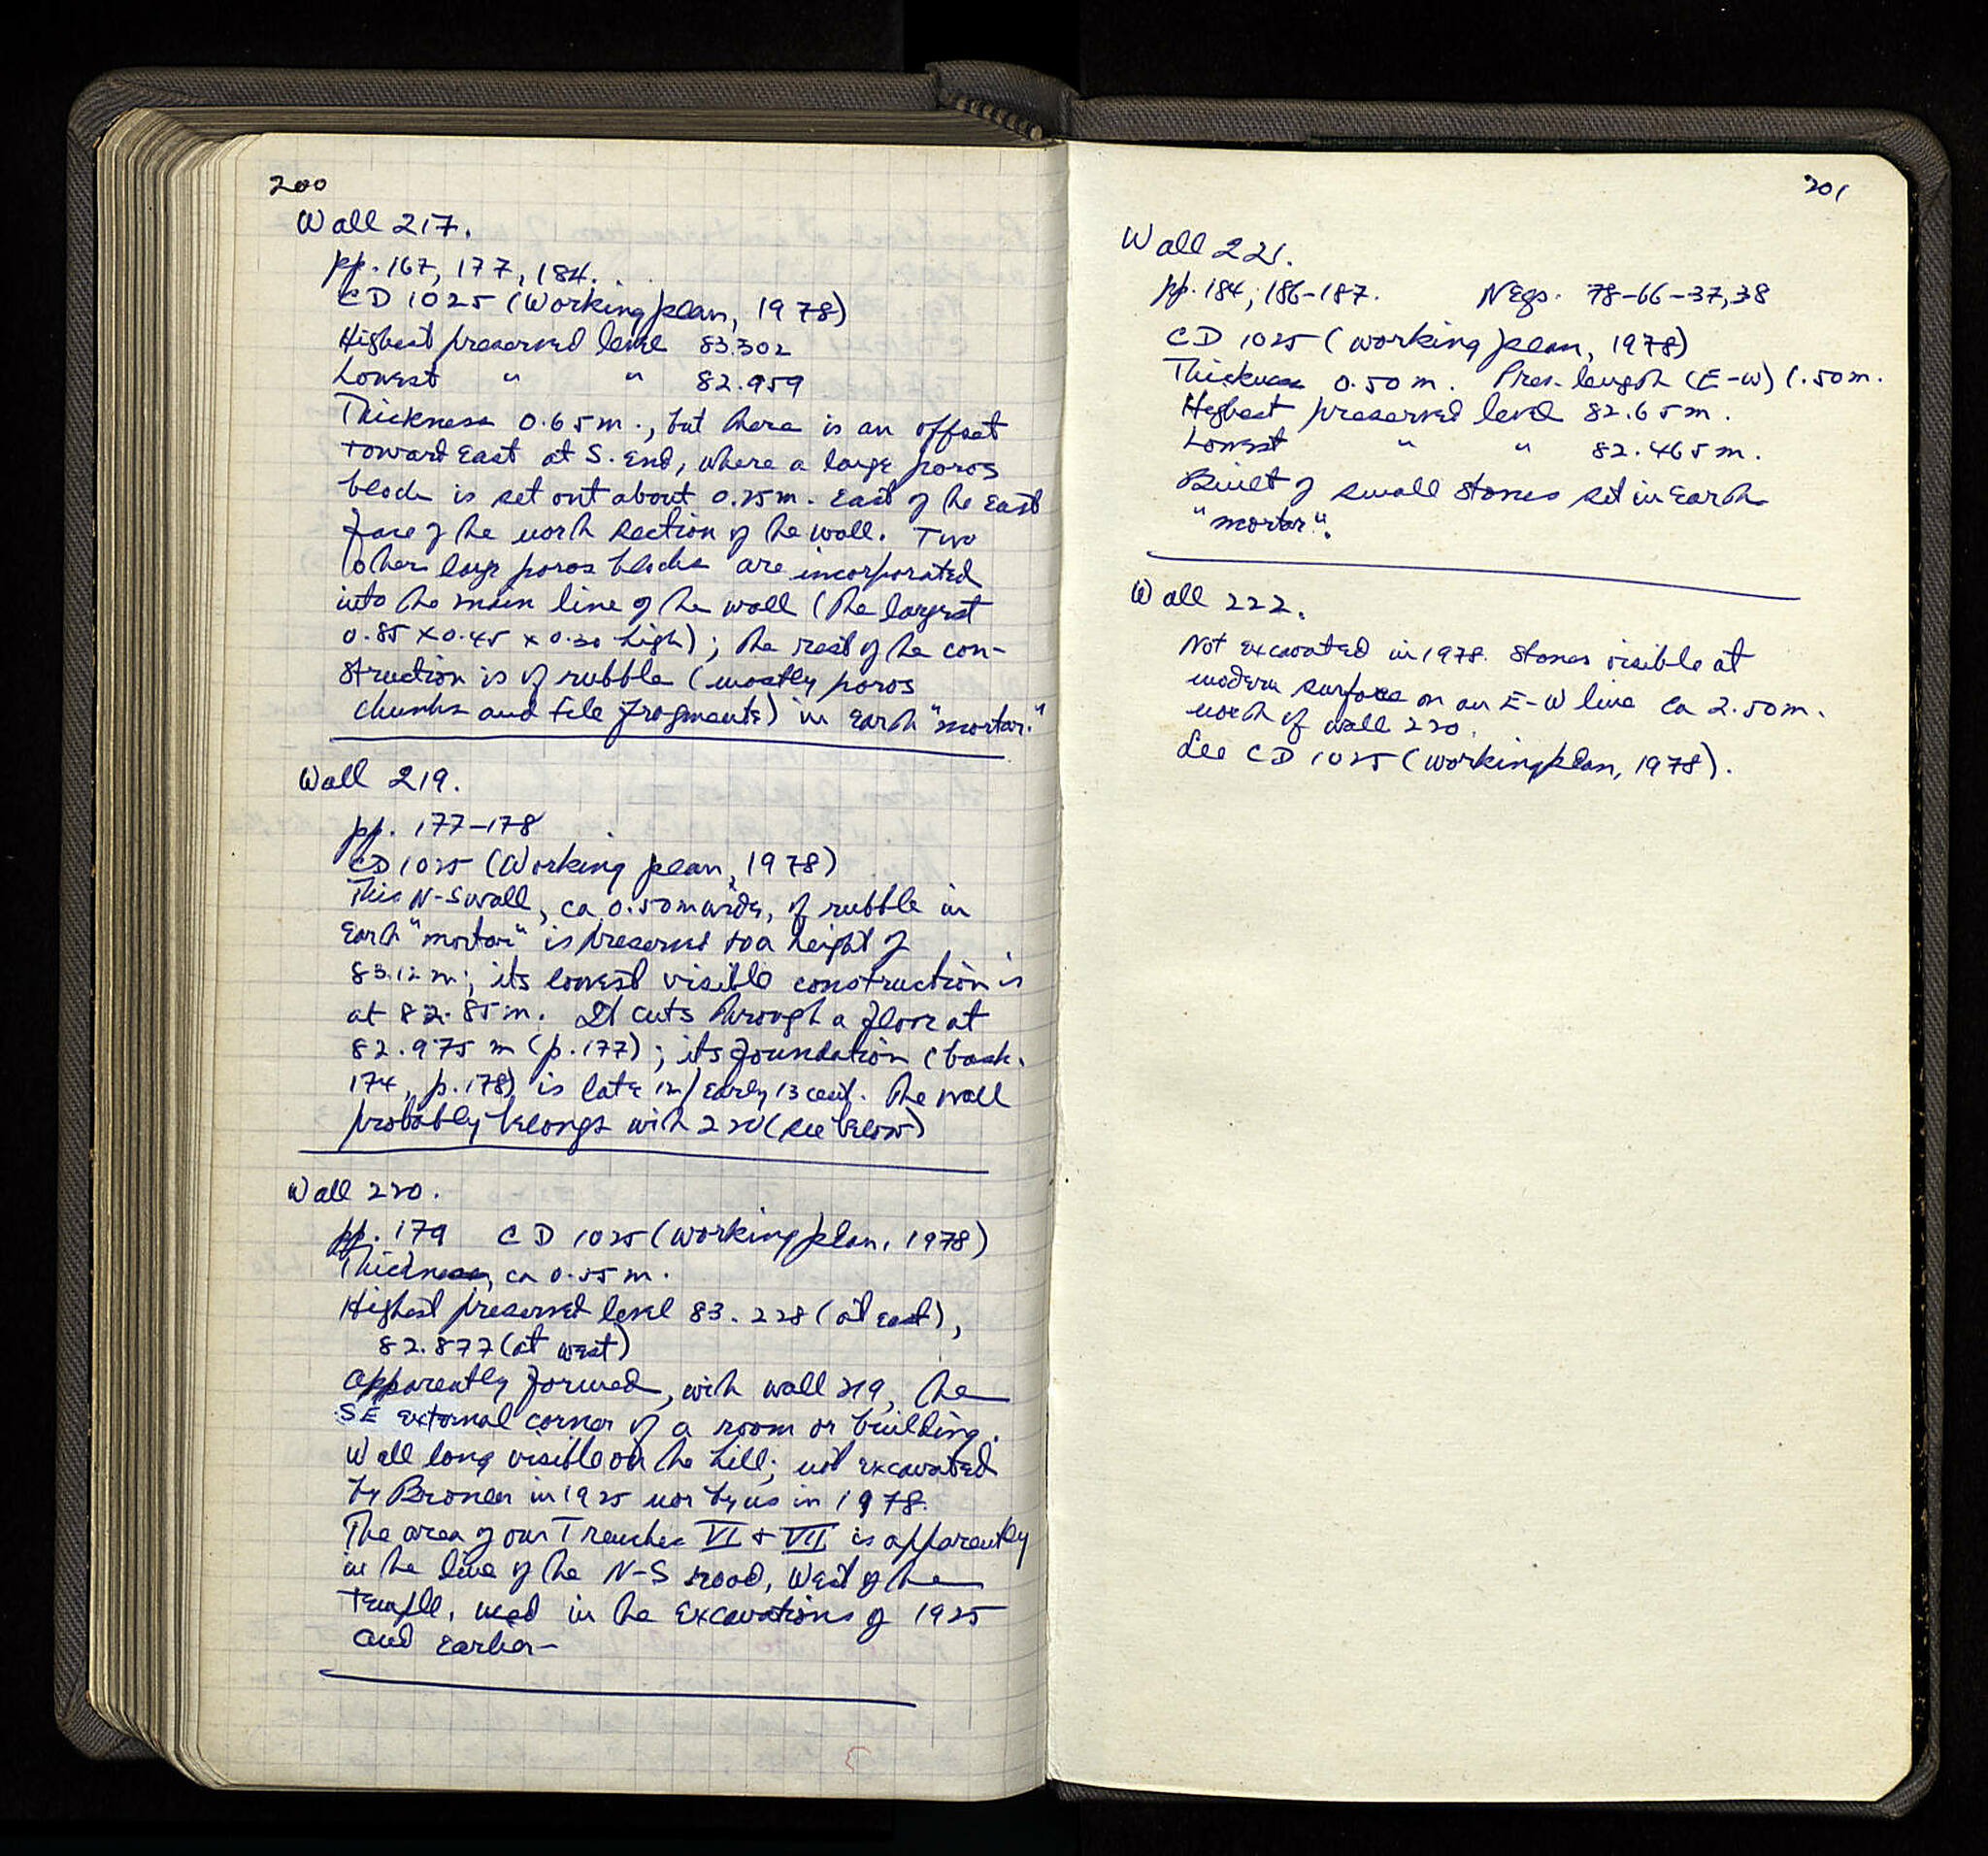 200
Wall 217.
pp. 167, 177, 184.
CD 1025 (Working plan, 1978)
Highest preserved level 83.302
Lowest " " 82.959
Thickness 0.65 m., but there is an offset
toward East at S. End, where a large poros
block is set out about 0.25 m. East of the East
face of the north section of the wall. Two
other large poros blocks are incorporated
into the main line of the wall (the largest
0.85 x 0.45 x 0.30 high); the rest of the con-
struction is of rubble (mostly poros
chunks and tile fragments) in Earth "mortar."
Wall 219.
pp. 177-178
CD 1025 (Working plan, 1978)
This N-S wall, ca 0.50 m wide, of rubble in
Earth "mortar" is preserved to a height of
83.12 m; its lowest visible construction is
at 82.85 m. It cuts through a floor at
82.975 m (p. 177); its foundation (bask.
174, p. 178) is late 12/early 13 cent. The wall
probably belongs with 220 (see below)
Wall 220.
pp. 179 CD 1025 (working plan, 1978)
Thickness, ca 0.55 m.
Highest preserved level 83.228 (at east),
82.877 (at west)
Apparently formed, with wall 219, the
SE external corner of a room or building.
Wall long visible on the hill; not excavated
by Broneer in 1925 nor by us in 1978.
The area of our Trenches VI + VII is apparently
in the line of the N-S road, West of the
Temple, used in the Excavations of 1925
and earlier-
201
Wall 221.
pp. 184, 186-187. Negs. 78-66-37,38
CD 1025 (working plan, 1978)
Thickness 0.50 m. Pres. length (E-W) 1.50 m.
Highest preserved level 82.65 m.
Lowest " " 82.465 m.
Built of small stones set in Earth
"mortar".
Wall 222.
Not excavated in 1978. Stones visible at
modern surface on an E-W line ca 2.50 m.
north of wall 220.
See CD 1025 (working plan, 1978).